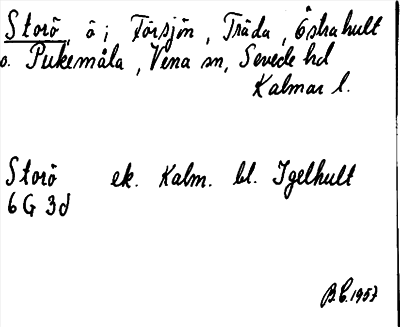 Storö, ö i Försjön, Träda, Östrahult
o. Pukemåla, Vena sn, Sevede hd
Kalmar l.
Storö ek. Kalm. bl. Igelhult
6 G 3d
B.C. 1957